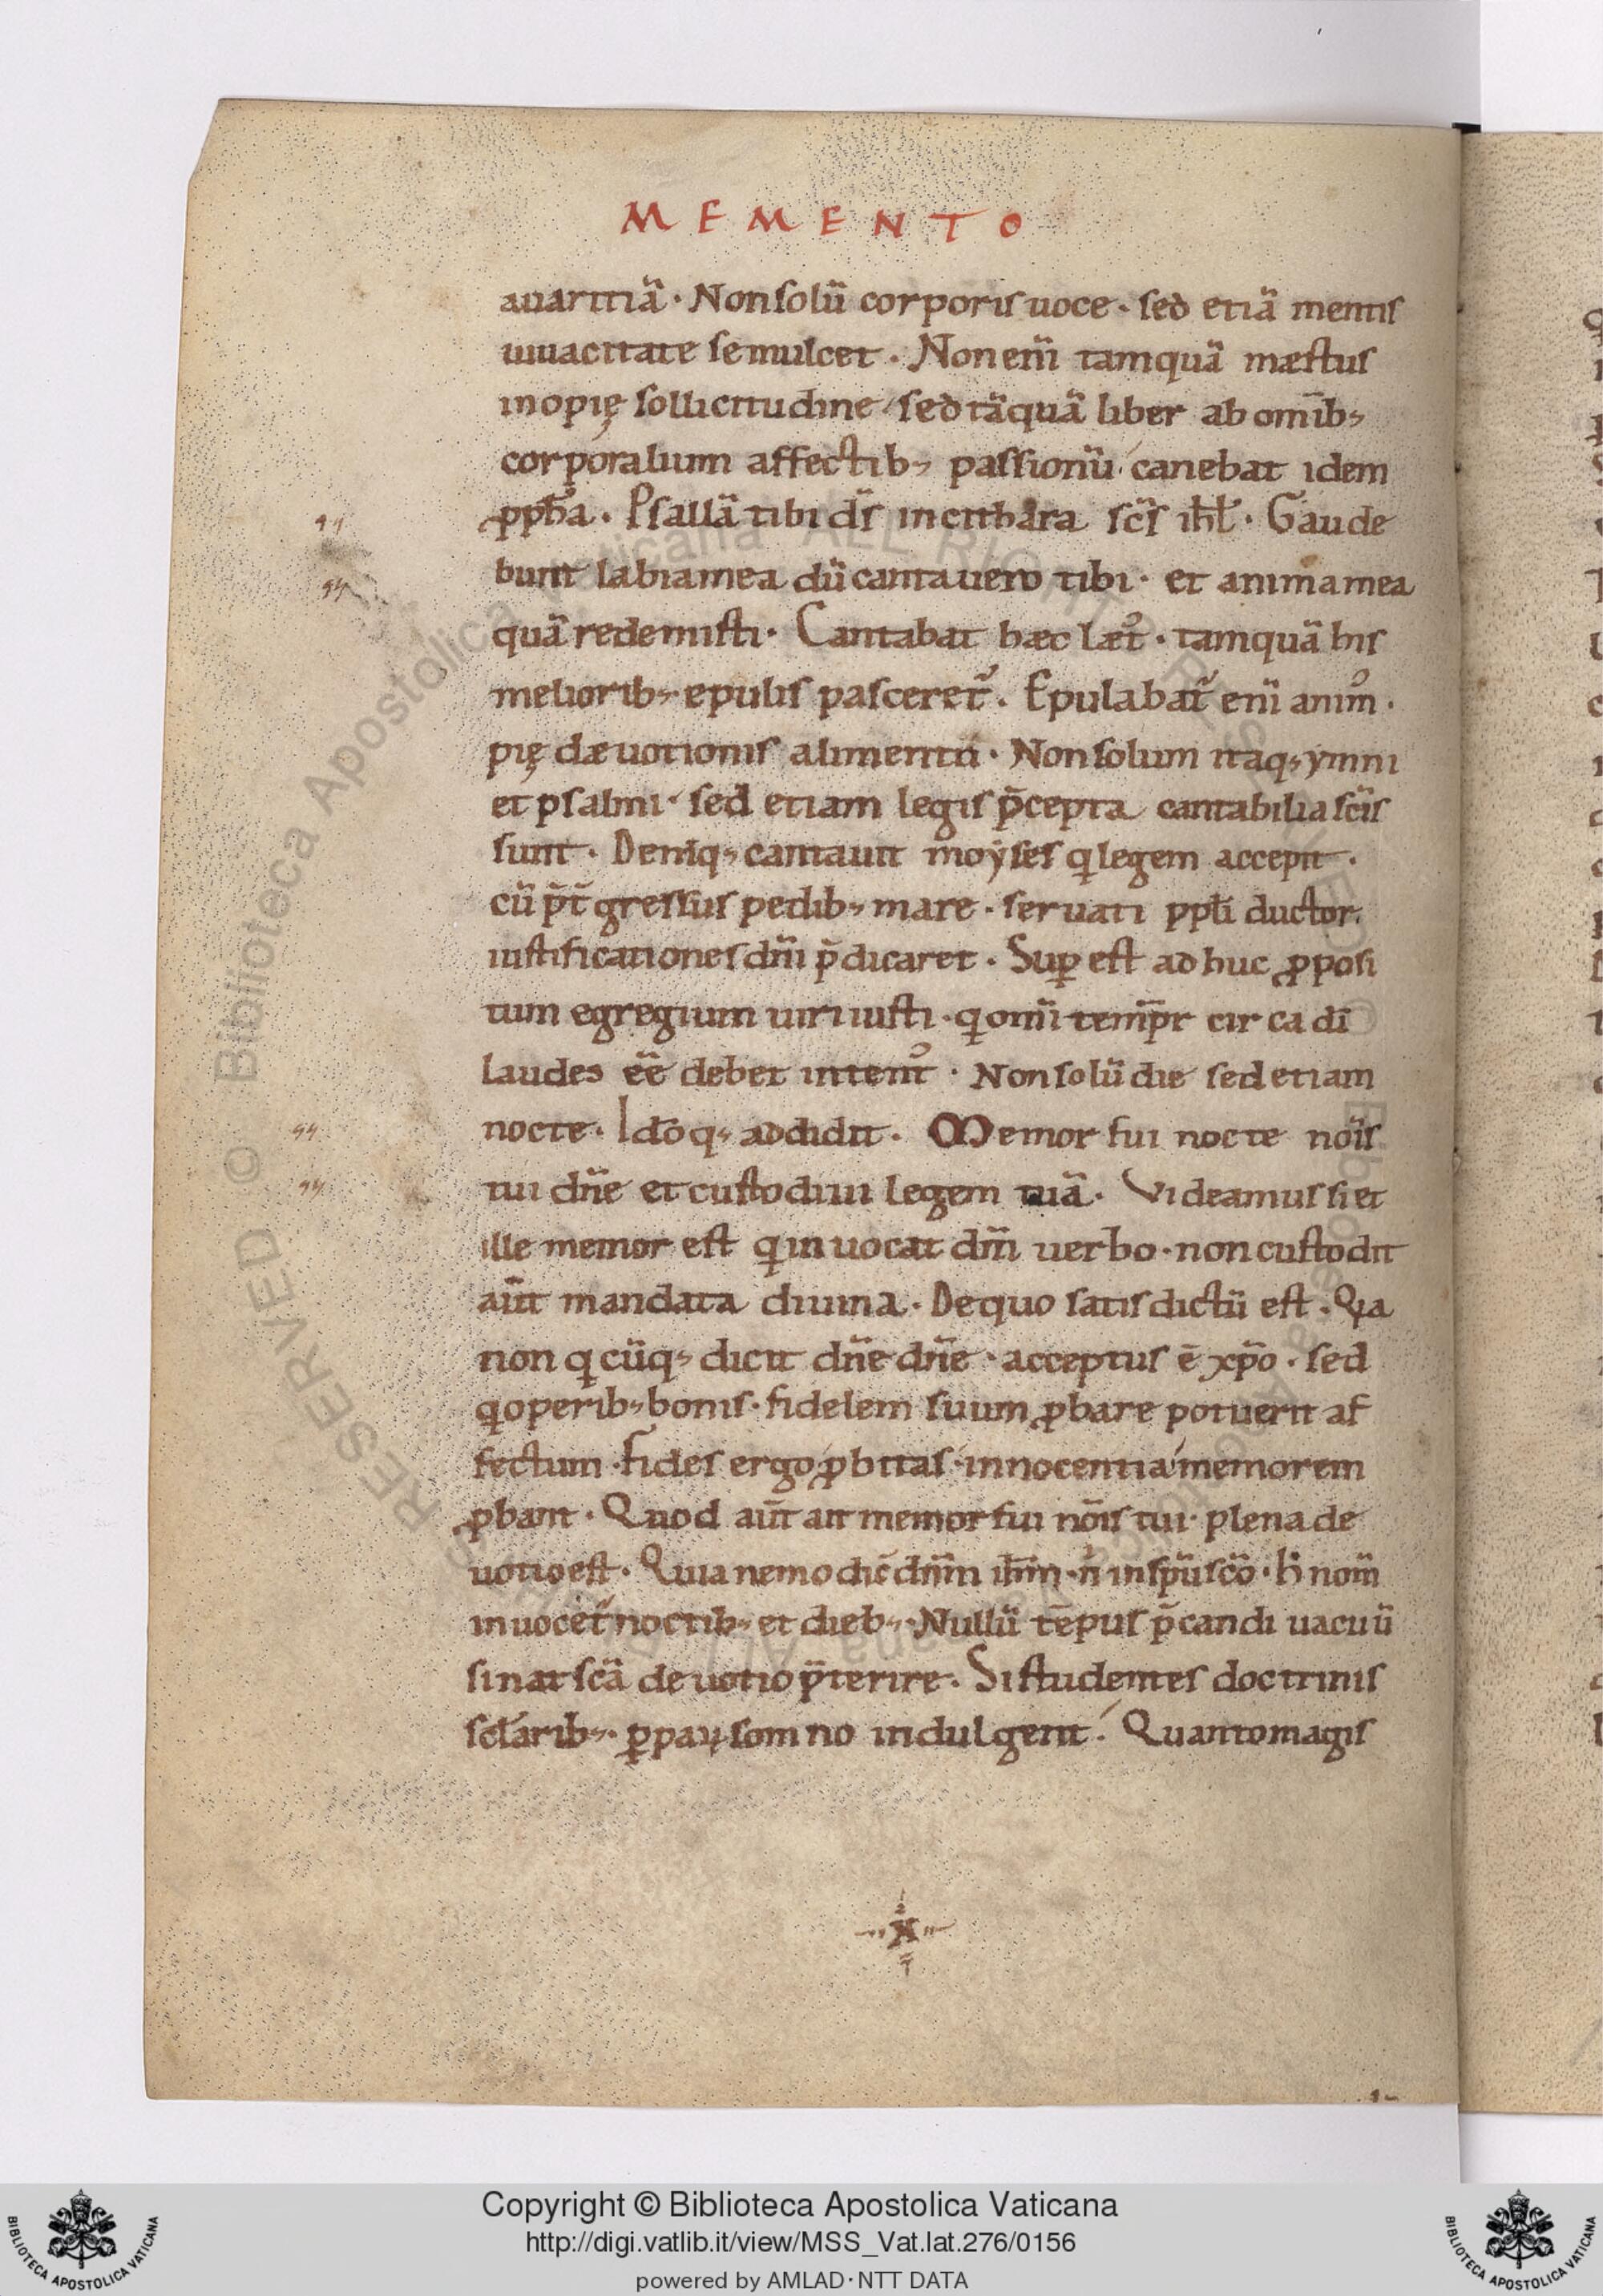 MEMENTO
auaritiā · Non solū corporis uoce · sed etiā mentis
uiuacitate se mulcet · Non eni̅ tamquā mæstus
inopię sollicitudine · sed tāquā liber ab om̅ib;
corporalium affectib; passionū canebat idem
ꝓph̅a · Psallā tibi d̅s in cithara sc̅s ih̅l · Gaude
bunt labia mea dū cantauero tibi · et anima mea
quā redemisti · Cantabat hæc læt᷒ · tamquā his
meliorib; epulis pasceret᷑ · Epulabat᷑ eni̅ anim᷒ ·
pię dæuotionis alimentū · Non solum itaq; ymni
et psalmi · sed etiam legis p̅cepta cantabilia sc̅is
sunt · Deniq; cantauit moẏses q legem accepit ·
cū p̅t̅gressus pedib; mare · seruati ppl̅i ductor
iustificationes dn̅i p̅dicaret · Suꝑ est ad huc ꝓposi
tum egregium uiri iusti · q omi̅ temp̅r circa di̅
laudes ee̅ debet intent᷒ · Non solū die sed etiam
nocte · Ido̅q; addidit · Memor fui nocte noi̅s
tui dn̅e et custodiui legem tuā · Videamus si et
ille memor est q inuocat dn̅m uerbo · non custodit
aut̅ mandata diuina · De quo satis dictū est · Qia
non q cūq; dicit dn̅e dn̅e · acceptus ē xp̅o · sed
q operib; bonis · fidelem suum ꝓbare potuerit af
fectum · Fides ergo ꝓbitas · innocentia memorem
ꝓbant · Quod aut̅ ait memor fui no̅is tui · plena de
uotio est · Quia nemo dic̅ dn̅m ih̅m · n̅ in sp̅u sc̅o · h nom̅
inuocet᷑ noctib; et dieb; · Nullū te̅pus p̅candi uacuū
sinat sc̅ā deuotio p̅terire · Si studentes doctrinis
scl̅arib; · ꝑ paꝝ somno indulgent · Quanto magis
Copyright © Biblioteca Apostolica Vaticana
http://digi.vatlib.it/view/MSS_Vat.lat.276/0156
powered by AMLAD·NTT DATA